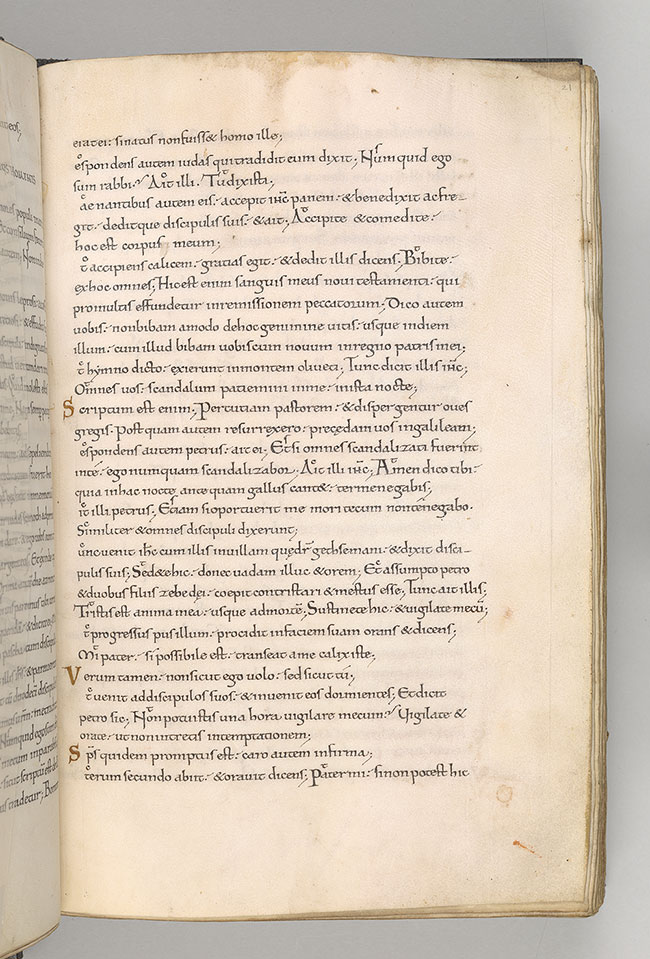 21
ei ater: si natus non fuiss& homo ille;
espondens autem iudas qui tradidit eum dixit; Numquid ego
sum rabbi? Ait illi. Tu dixisti;
aenantibus autem eis: accepit ihc panem: & benedixit ac fre-
git: deditque discipulis suis: & ait; Accipite & comedite:
hoc est corpus meum;
t accipiens calicem: gratias egit: & dedit illis dicens; Bibite
ex hoc omnes; Hic est enim sanguis meus noui testamenti: qui
pro multis effundetur in remissionem peccatorum; Dico autem
uobis: non bibam amodo de hoc genimine uitis: usque in diem
illum: cum illud bibam uobiscum nouum in regno patris mei;
t hymno dicto: exierunt in montem oliueti; Tunc dicit illis ihc;
Omnes uos: scandalum patiemini in me: in ista nocte;
Scriptum est enim; Percutiam pastorem: & dispergentur oues
gregis; Postquam autem resurrexero: precedam uos in galileam;
espondens autem petrus: ait ei; Etsi omnes scandalizati fuerint
in te: ego numquam scandalizabor; Ait illi ihc; Amen dico tibi
quia in hac nocte ante quam gallus cant&: ter me negabis;
it illi petrus; Etiam si oportuerit me mori tecum non te negabo.
Similiter & omnes discipuli dixerunt;
unc uenit ihc cum illis in uillam que dr gethsemani: & dixit disci-
pulis suis; Sed&e hic: donec uadam illuc & orem; Et assumpto petro
& duobus filiis zebedei: coepit contristari & mestus esse; Tunc ait illis;
Tristis est anima mea: usque ad mortē; Sustinete hic: & uigilate mecū;
t progressus pusillum: procidit in faciem suam orans & dicens;
Mi pater: si possibile est: transeat a me calix iste;
Verum tamen: non sicut ego uolo: sed sicut tu;
t uenit ad discipulos suos: & inuenit eos dormientes; Et dicit
petro sic; Non potuistis una hora uigilare mecum? Uigilate &
orate: ut non intretis in temptationem;
Sps quidem promptus est: caro autem infirma;
terum secundo abiit: & orauit dicens; Pater mi: si non potest hic